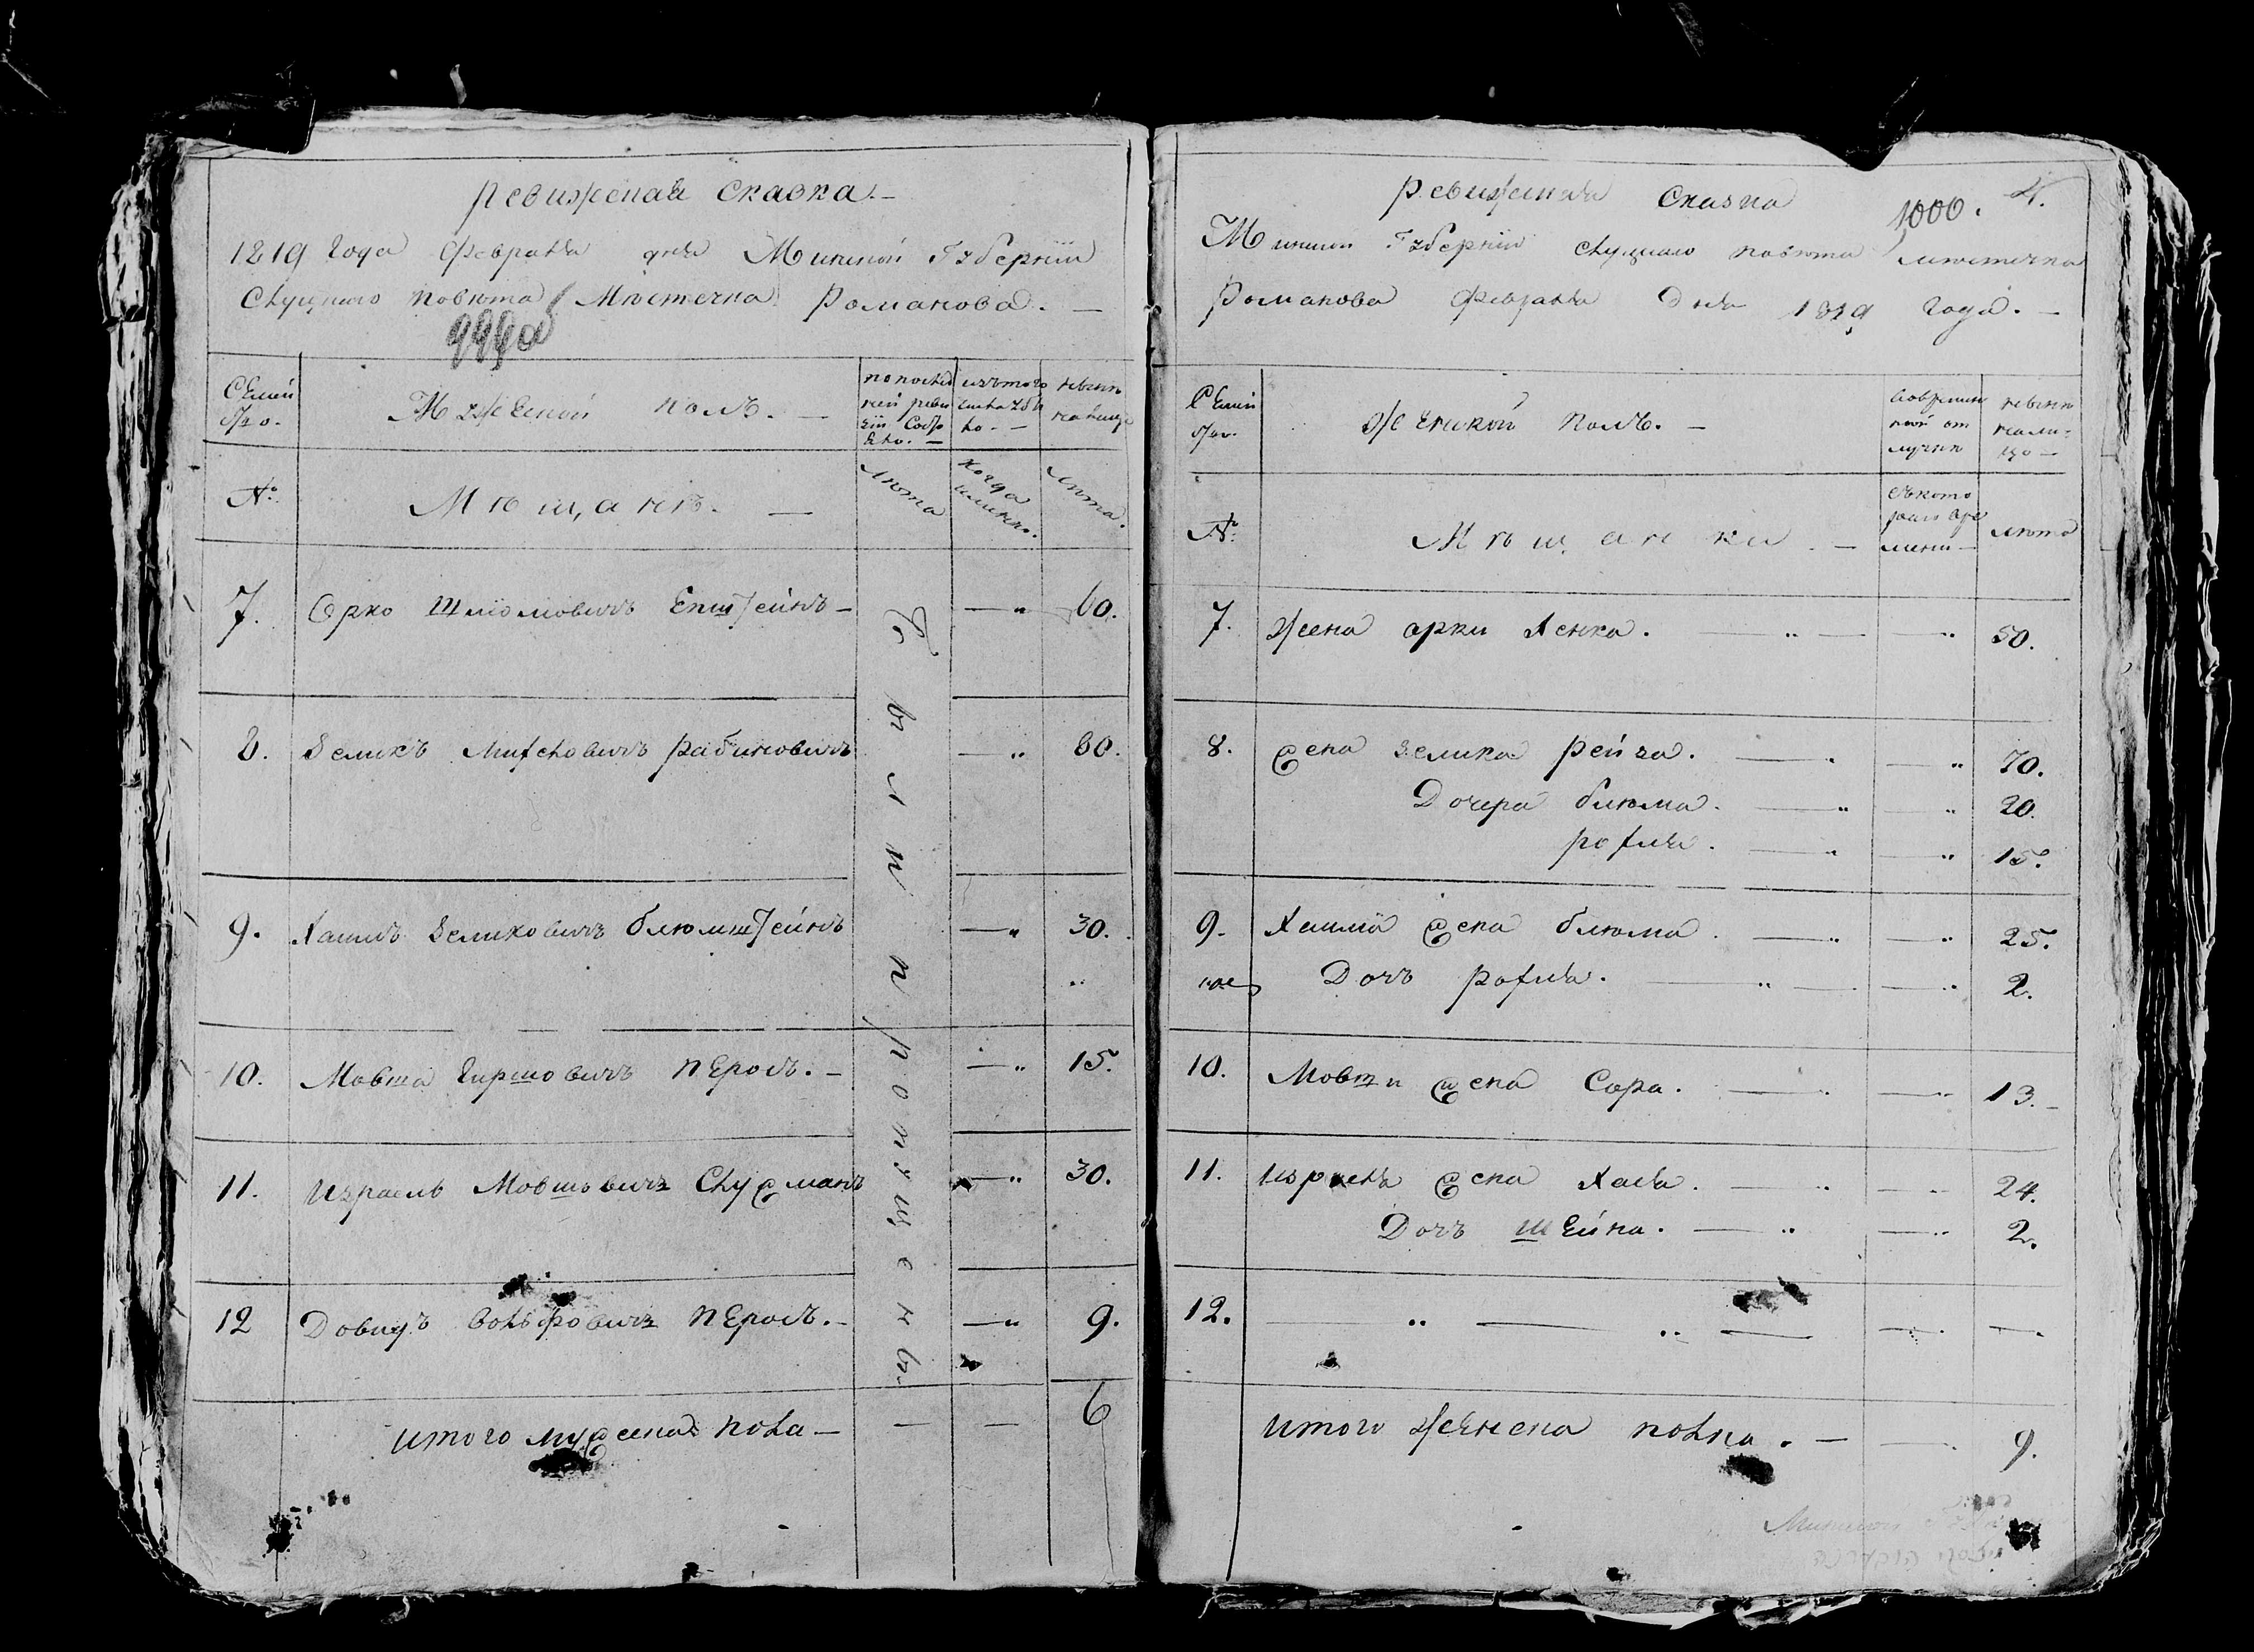 Ревижская Сказка. —
1819 Года Февраля дня Минской Губернїи
Слуцкаго Повѣта Мѣстечка Романова. —
999об
Семей
Мужеской полъ. —
по послед
ней реви
зіи
изътого
выбы
ло. —
нынѣ
налицо
№
Мѣщанѣ. —
лѣта
когда
имянно.
лѣта.
были пропущены.
7. Орко Шліомовичъ Епштейнъ — — „ 60.
8. Зеликъ Рабиновичъ — „ 80.
9. Хаимъ Зеликовичъ блюмштейнъ — „ 30.
10. Мовша Гиршовичъ Перолъ. — — „ 15.
11. Израель Мовшовичъ Слуцманъ — „ 30.
12 Довидъ Вольфовичъ Перолъ. — — „ 9.
итого мужеска пола — — — 6
Ревижская Сказка
1000. 4.
Минской Губернїи Слуцкаго повѣта мѣстечка
Романова Февраля Дня 1819 Года. —
Семей
Женской полъ. —
вовремен
ной от
лучкѣ
нынѣ
нали-
цо —
№
Мѣщанки. —
съкото
раго вре
мени —
лѣта
7. Жена орки Хенка. — „ — „ 50.
8. Жена Зелика Рейза. — „ — „ 70.
Дочера блюма. — „ — „ 20.
рохля. — „ — „ 15.
9. Хаимa Жена блюма. — „ — „ 25.
Дочъ рохля. — „ — — „ 2.
10. Мовши Жена Сора. — „ — „ 13.
11. Израеля Жена Хася. — „ — „ 24.
Дочъ Шейна. — „ — „ 2.
12. — „ — „ — — „ —.
Итого Женска полка. — — „ 9.